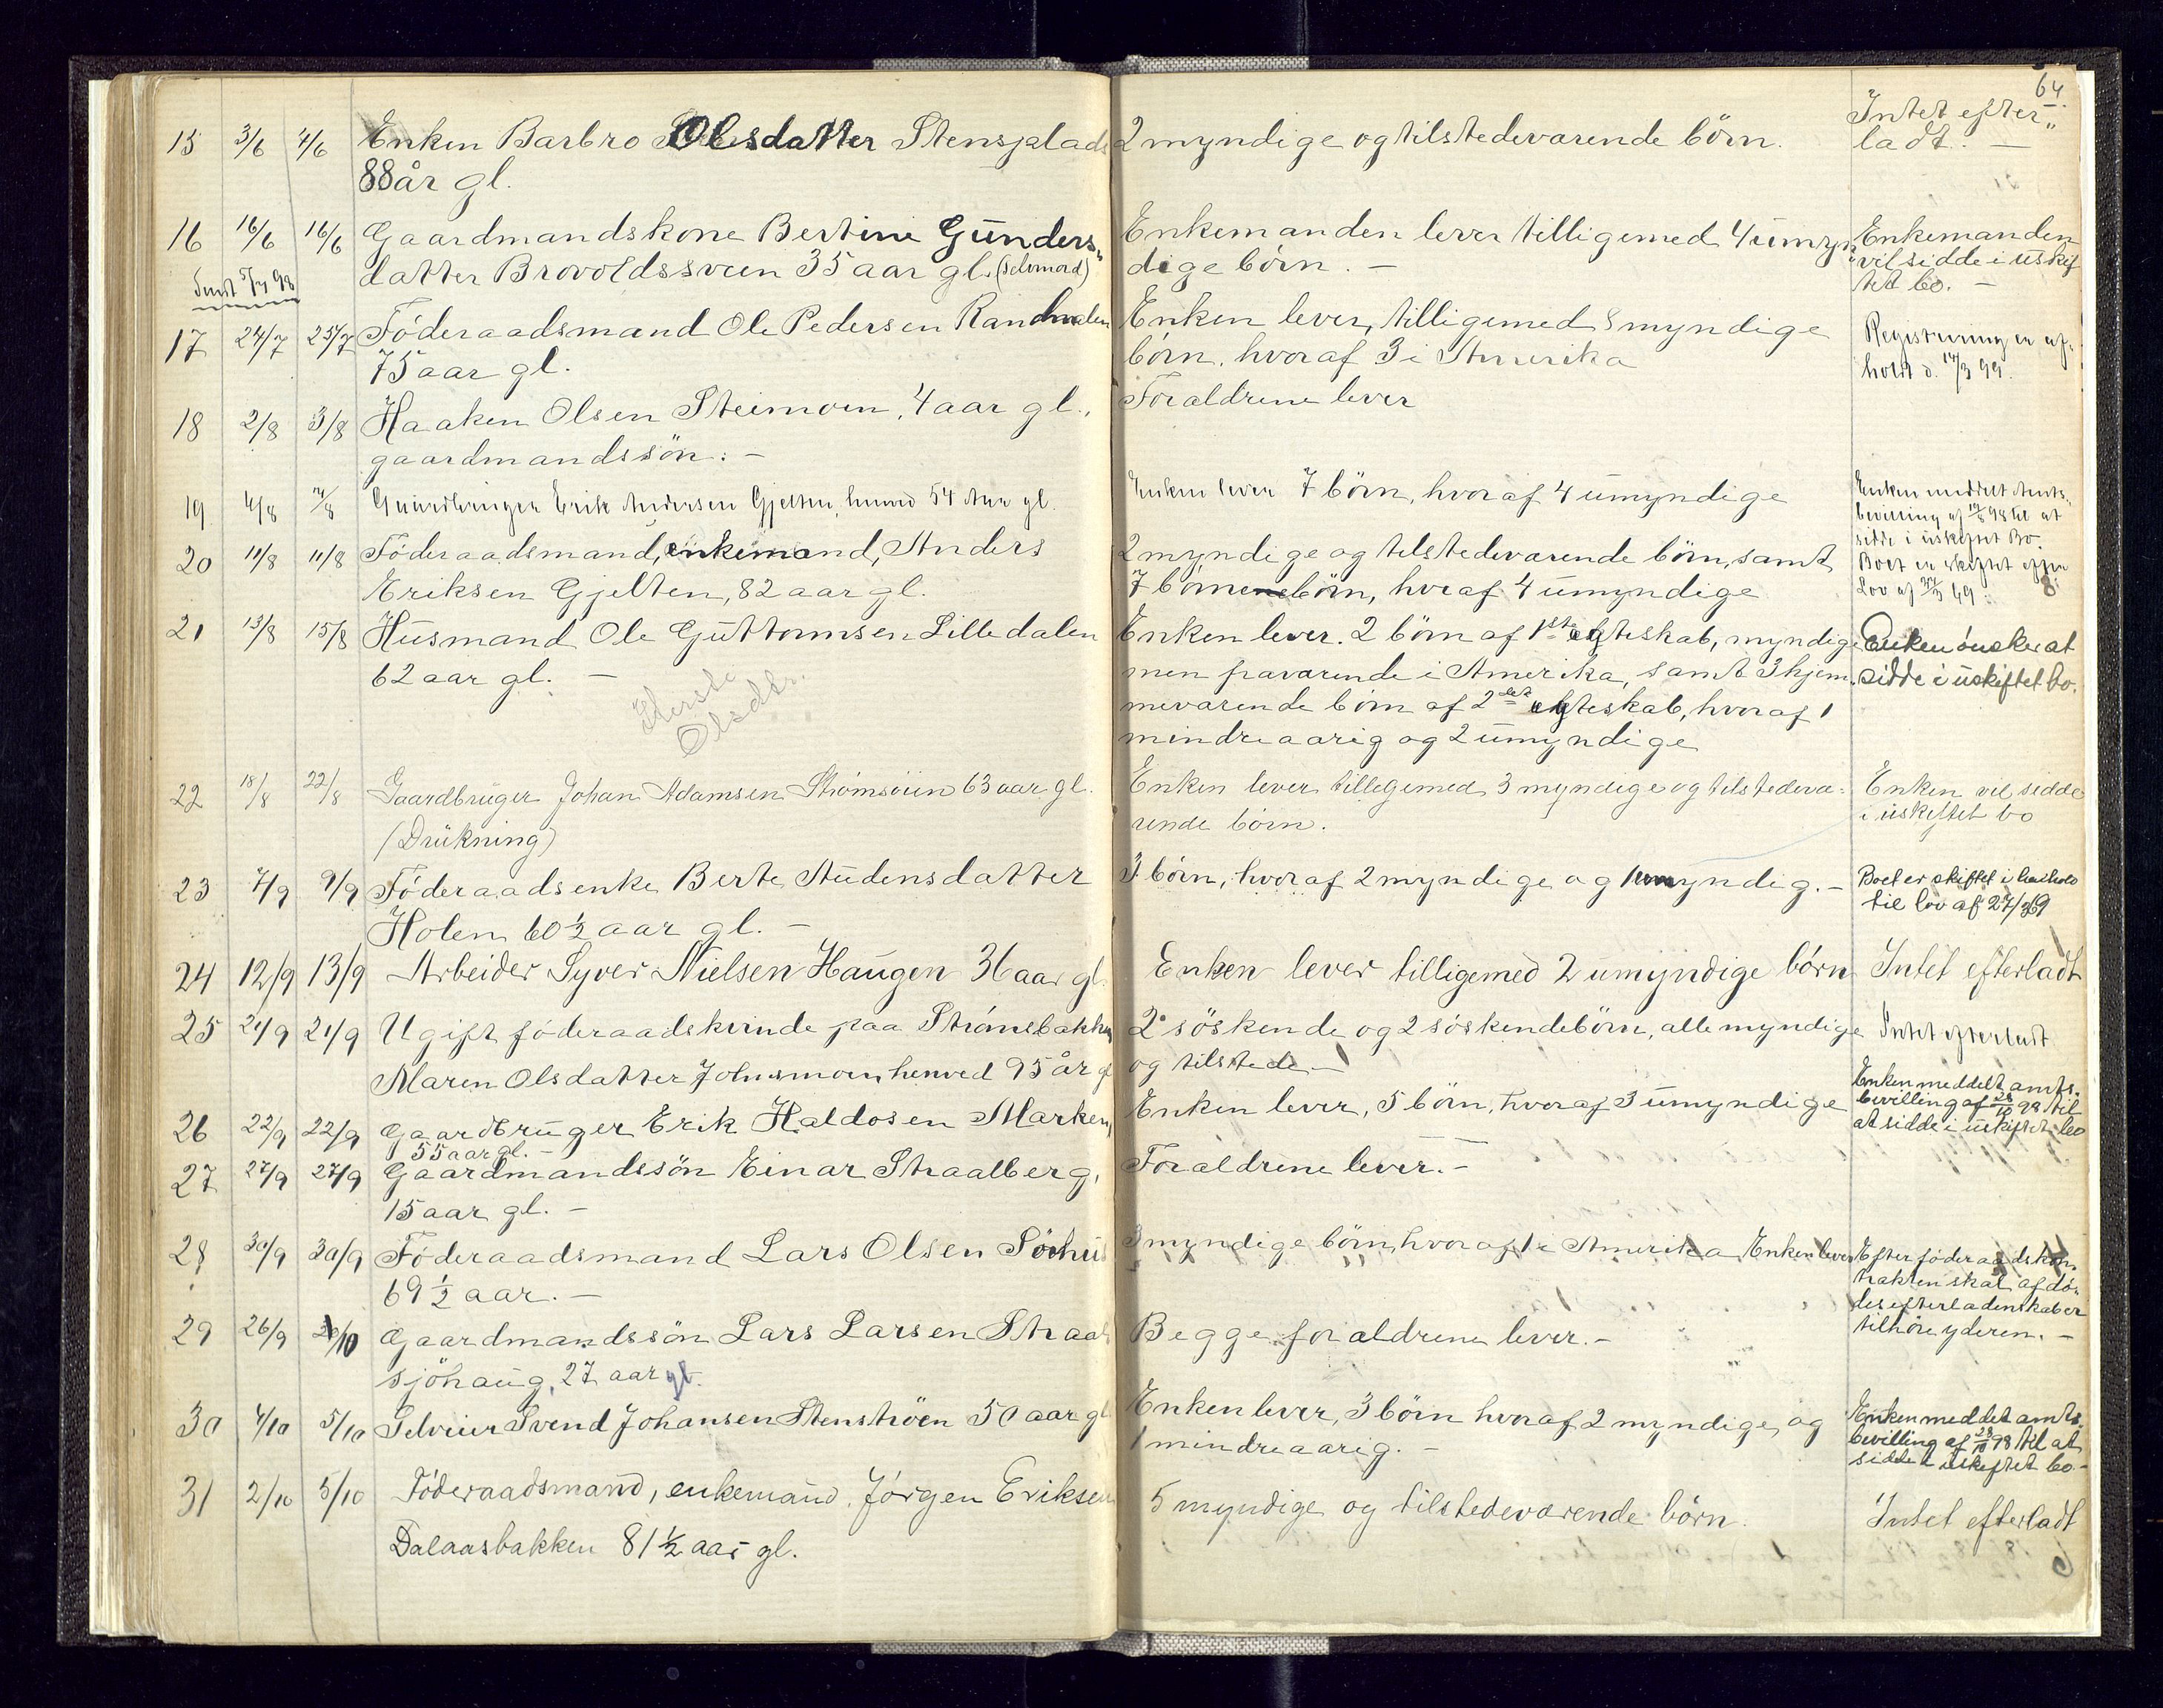 64.
15 3/6 4/6 Enken Barbro Olsdatter Stensplads 2 myndige og tilstedeværende börn. Intet efter„
88 år gl. ladt. —
16 16/6 16/6 Gaardmandskone Bertine Gunders„ Enkemanden lever tilligemed 4 umyn„ Enkemanden
datter Brovoldssveen 35 aar gl. (selvmord) dige börn. — vil sidde i uskif
Sendt 5/7 98 tet bo. —
17 24/7 25/7 Föderaadsmand Ole Pedersen Randmælen Enken lever, tilligemed 8 myndige Registrering er af„
75 aar gl. börn, hvoraf 3 i Amerika holdt d. 14/3 99.
18 2/8 3/8 Haaken Olsen Steimoen, 4 aar gl., Forældrene lever
gaardmandssön. —
19 4/8 Gaardbruger Erik Andersen Gjelten, henved 54 Aar gl. Enken lever 7 börn, hvoraf 4 umyndige Enken meddelt Amts„
bevilling af 19/8 98 til at
sidde i uskiftet Bo.
20 11/8 11/8 Föderaadsmand, enkemand, Anders 2 myndige og tilstedeværende börn, samt Boet er skiftet efter
Eriksen Gjelten, 82 aar gl. 7 börnebörn, hvoraf 4 umyndige Lov af 27/3 69.
21 13/8 15/8 Husmand Ole Guttormsen Lilledalen Enken lever. 2 börn af 1ste egteskab, myndige Enken önsker at
62 aar gl. — men fraværende i Amerika, samt 3 hjem„ sidde i uskiftet bo.
Olsdtr. meværende börn af 2det egteskab, hvoraf 1
mindreaarig og 2 umyndige
22 18/8 22/8 Gaardbruger Johan Adamsen Strömsöien 63 aar gl. Enken lever tilligemed 3 myndige og tilstedevæ= Enken vil sidde
(Drukning) rende börn. i uskiftet bo
23 7/9 9/9 Föderaadsenke Berte Audensdatter 3 börn, hvoraf 2 myndige og 1 umyndig. — Boet er skiftet i henhold
Holen 60½ aar gl. — til lov af 27/3 69
24 12/9 13/9 Arbeider Syver Nielsen Haugen 36 aar gl. Enken lever tilligemed 2 umyndige börn Intet efterladt
25 21/9 21/9 Ugift föderaadskvinde paa Strömsbakken 2 söskende og 2 söskendebörn, alle myndige Intet efterladt
Maren Olsdatter Johnsmoen henved 95 år gl og tilstede. —
26 22/9 22/9 Gaardbruger Erik Haldosen Marken, Enken lever, 5 börn, hvoraf 3 umyndige Enken meddelt amts„
55 aar gl. — bevilling af 28/10 98 til
at sidde i uskiftet bo
27 27/9 27/9 Gaardmandssön Einar Straalberg, Forældrene lever. —
15 aar gl. —
28 30/9 30/9 Föderaadsmand Lars Olsen Sörhus 3 myndige börn, hvoraf 1 i Amerika Enken lever Efter föderaadskon„
69½ aar. — trakten skal afdö„
des efterladenskaber
tilhöre yderen. —
29 26/9 Gaardmandssön Lars Larsen Straal Begge forældrene lever. —
sjöhaug, 27 aar gl.
30 4/10 5/10 Selveier Svend Johansen Stenströen 50 aar gl Enken lever, 3 börn hvoraf 2 myndige, og Enken meddelt amts„
1 mindreaarig. — bevilling af 28/10 98 til at
sidde i uskiftet bo. —
31 2/10 5/10 Föderaadsmand, enkemand, Jörgen Eriksen 5 myndige og tilstedeværende börn. Intet efterladt
Dalaasbakken 81½ aar gl.